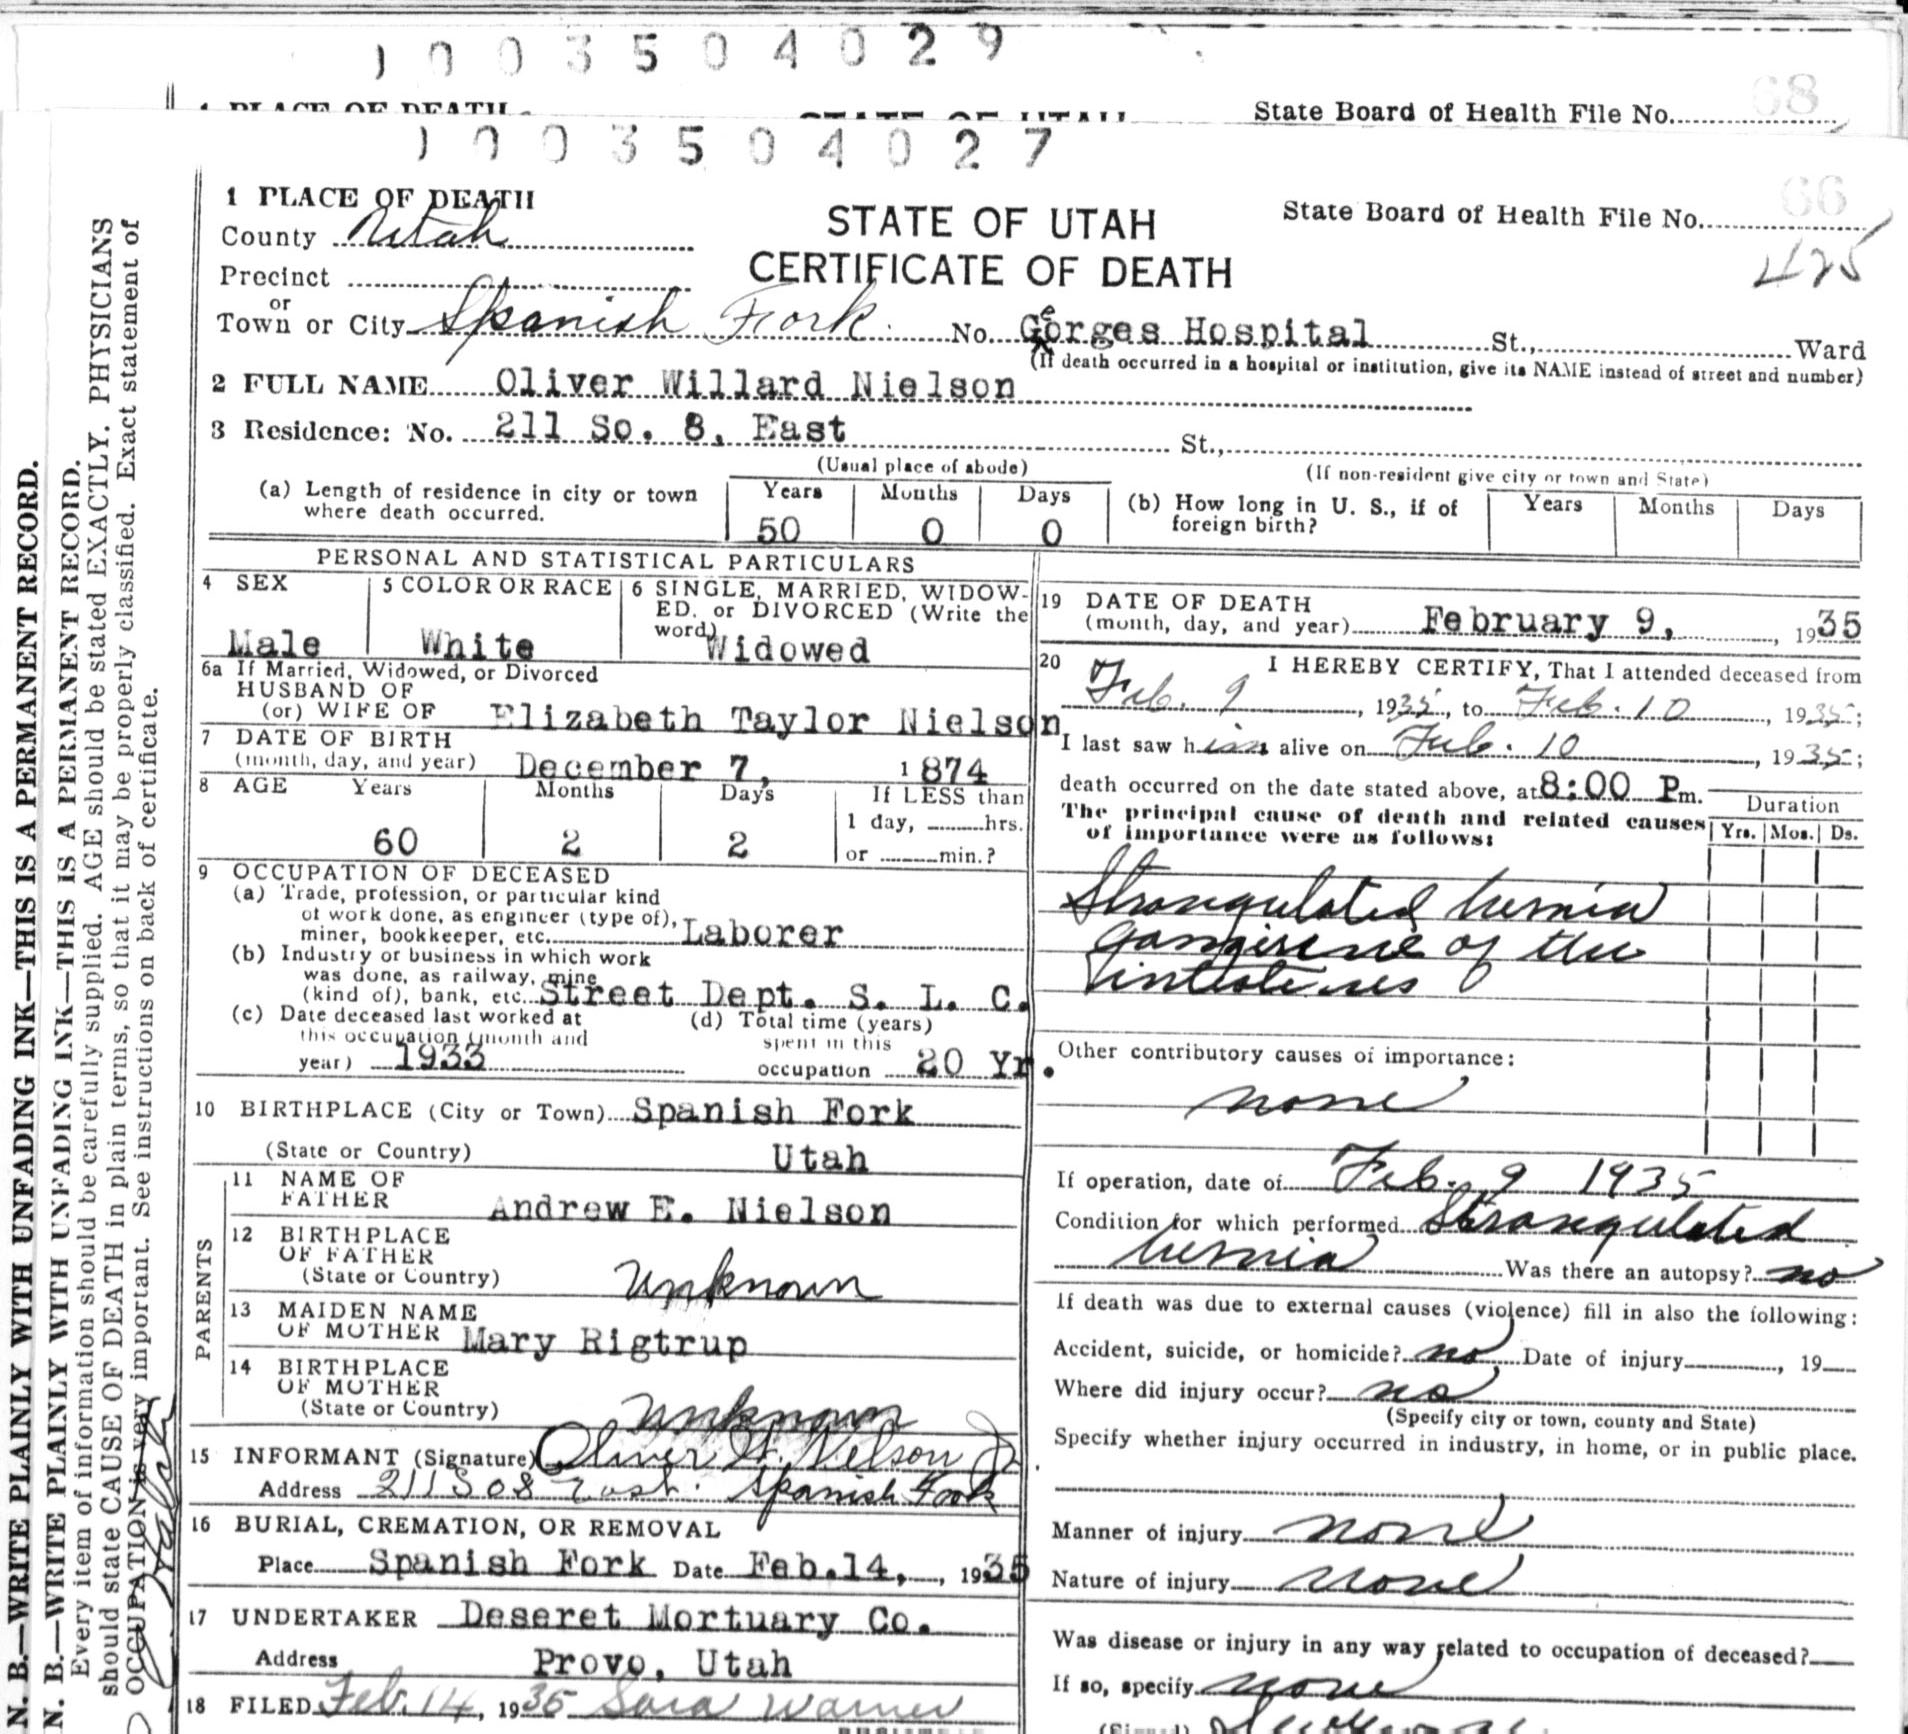 1003504029
1 PLACE OF DEATH
STATE OF UTAH
State Board of Health File No. 68
1003504027
1 PLACE OF DEATH
County Utah
Precinct
or
Town or City Spanish Fork. No. Gorges Hospital St., Ward
e
(If death occurred in a hospital or institution, give its NAME instead of street and number)
STATE OF UTAH
CERTIFICATE OF DEATH
State Board of Health File No. 66
425
2 FULL NAME Oliver Willard Nielson
3 Residence: No. 211 So. 8, East St.,
(Usual place of abode)
(If non-resident give city or town and State)
(a) Length of residence in city or town
where death occurred.
Years Months Days
50 0 0
(b) How long in U. S., if of
foreign birth?
Years Months Days
PERSONAL AND STATISTICAL PARTICULARS
4 SEX
Male
5 COLOR OR RACE
White
6 SINGLE, MARRIED, WIDOW-
ED, or DIVORCED (Write the
word)
Widowed
6a If Married, Widowed, or Divorced
HUSBAND OF
(or) WIFE OF Elizabeth Taylor Nielson
7 DATE OF BIRTH
(month, day, and year) December 7, 1874
8 AGE Years Months Days If LESS than
1 day, hrs.
60 2 2 or min.?
9 OCCUPATION OF DECEASED
(a) Trade, profession, or particular kind
of work done, as engineer (type of),
miner, bookkeeper, etc. Laborer
(b) Industry or business in which work
was done, as railway, mine
(kind of), bank, etc. Street Dept. S. L. C.
(c) Date deceased last worked at
this occupation (month and
year) 1933
(d) Total time (years)
spent in this
occupation 20 Yr.
10 BIRTHPLACE (City or Town) Spanish Fork
(State or Country) Utah
PARENTS
11 NAME OF
FATHER Andrew E. Nielson
12 BIRTHPLACE
OF FATHER
(State or Country) Unknown
13 MAIDEN NAME
OF MOTHER Mary Rigtrup
14 BIRTHPLACE
OF MOTHER
(State or Country) Unknown
15 INFORMANT (Signature) Oliver W. Nelson Jr
Address 211 So 8 East. Spanish Fork
16 BURIAL, CREMATION, OR REMOVAL
Place Spanish Fork Date Feb.14, 1935
17 UNDERTAKER Deseret Mortuary Co.
Address Provo, Utah
18 FILED Feb. 14, 1935 Sara Warner
19 DATE OF DEATH
(month, day, and year) February 9, 1935
20 I HEREBY CERTIFY, That I attended deceased from
Feb. 9, 1935, to Feb. 10, 1935;
I last saw him alive on Feb. 10, 1935;
death occurred on the date stated above, at 8:00 P m.
The principal cause of death and related causes
of importance were as follows:
Duration
Yrs. Mos. Ds.
Strangulated hernia
gangirene of the
intestines
Other contributory causes of importance:
none
If operation, date of Feb. 9 1935
Condition for which performed Strangulated
hernia Was there an autopsy? no
If death was due to external causes (violence) fill in also the following:
Accident, suicide, or homicide? no Date of injury , 19
Where did injury occur? no
(Specify city or town, county and State)
Specify whether injury occurred in industry, in home, or in public place.
Manner of injury none
Nature of injury none
Was disease or injury in any way related to occupation of deceased?
If so, specify none
(Signed)
N. B.—WRITE PLAINLY WITH UNFADING INK—THIS IS A PERMANENT RECORD.
N. B.—WRITE PLAINLY WITH UNFADING INK—THIS IS A PERMANENT RECORD.
Every item of information should be carefully supplied. AGE should be stated EXACTLY. PHYSICIANS
should state CAUSE OF DEATH in plain terms, so that it may be properly classified. Exact statement of
OCCUPATION is very important. See instructions on back of certificate.